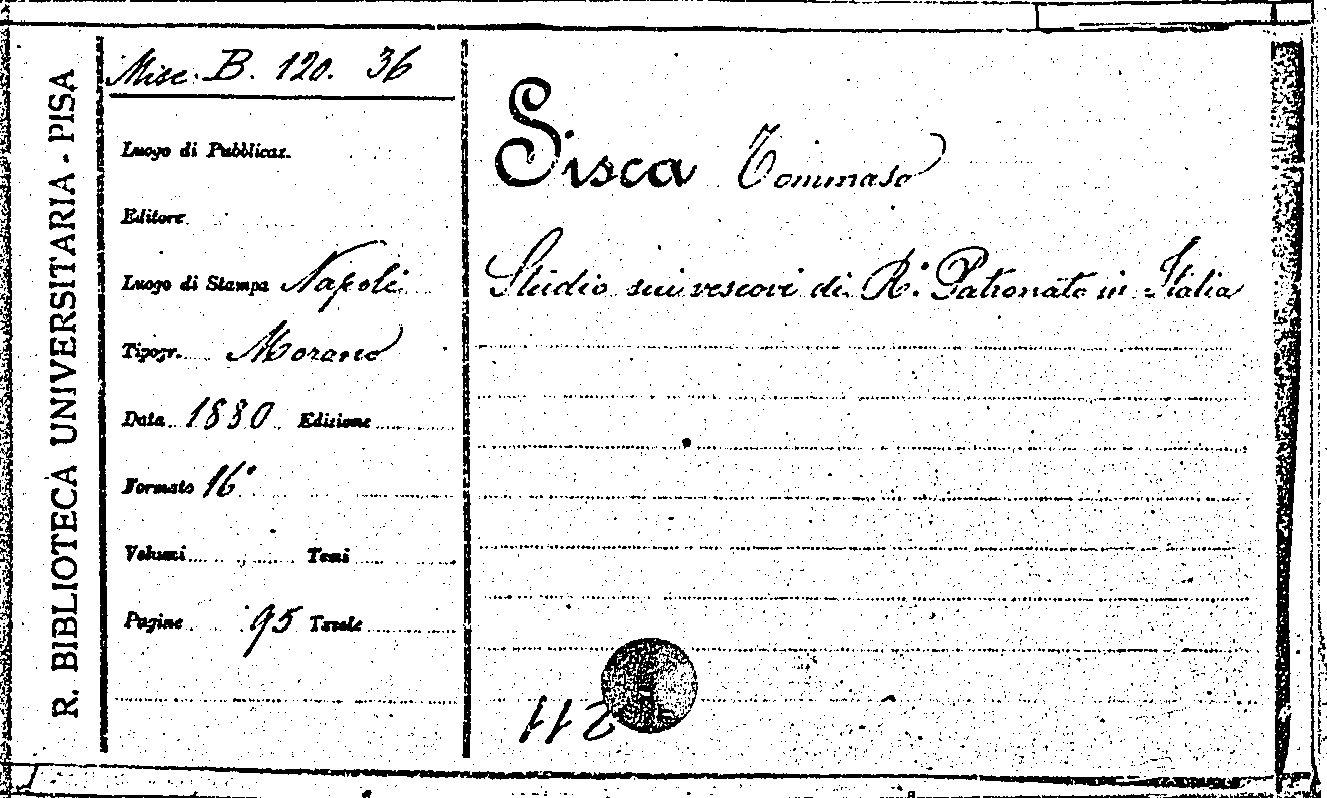 R. BIBLIOTECA UNIVERSITARIA - PISA
Misc. B. 120. 36
Luogo di Pubblicaz.
Editore
Luogo di Stampa Napoli
Tipogr. Morano
Data 1880 Edizione
Formato 16°
Volumi Tomi
Pagine 95 Tavole
Sisca Tommaso
Studio sui vescovi di R.° Patronato in Italia